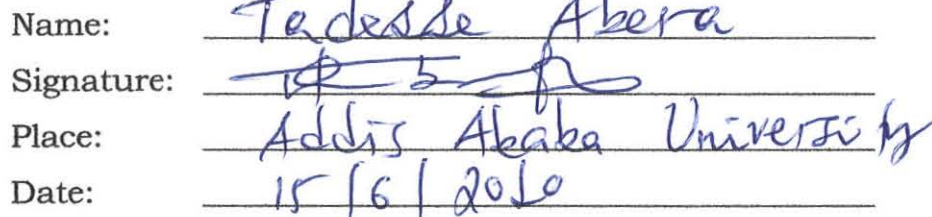 Name: Tadesse Abera
Signature:
Place: Addis Ababa University
Date: 15/6/2010